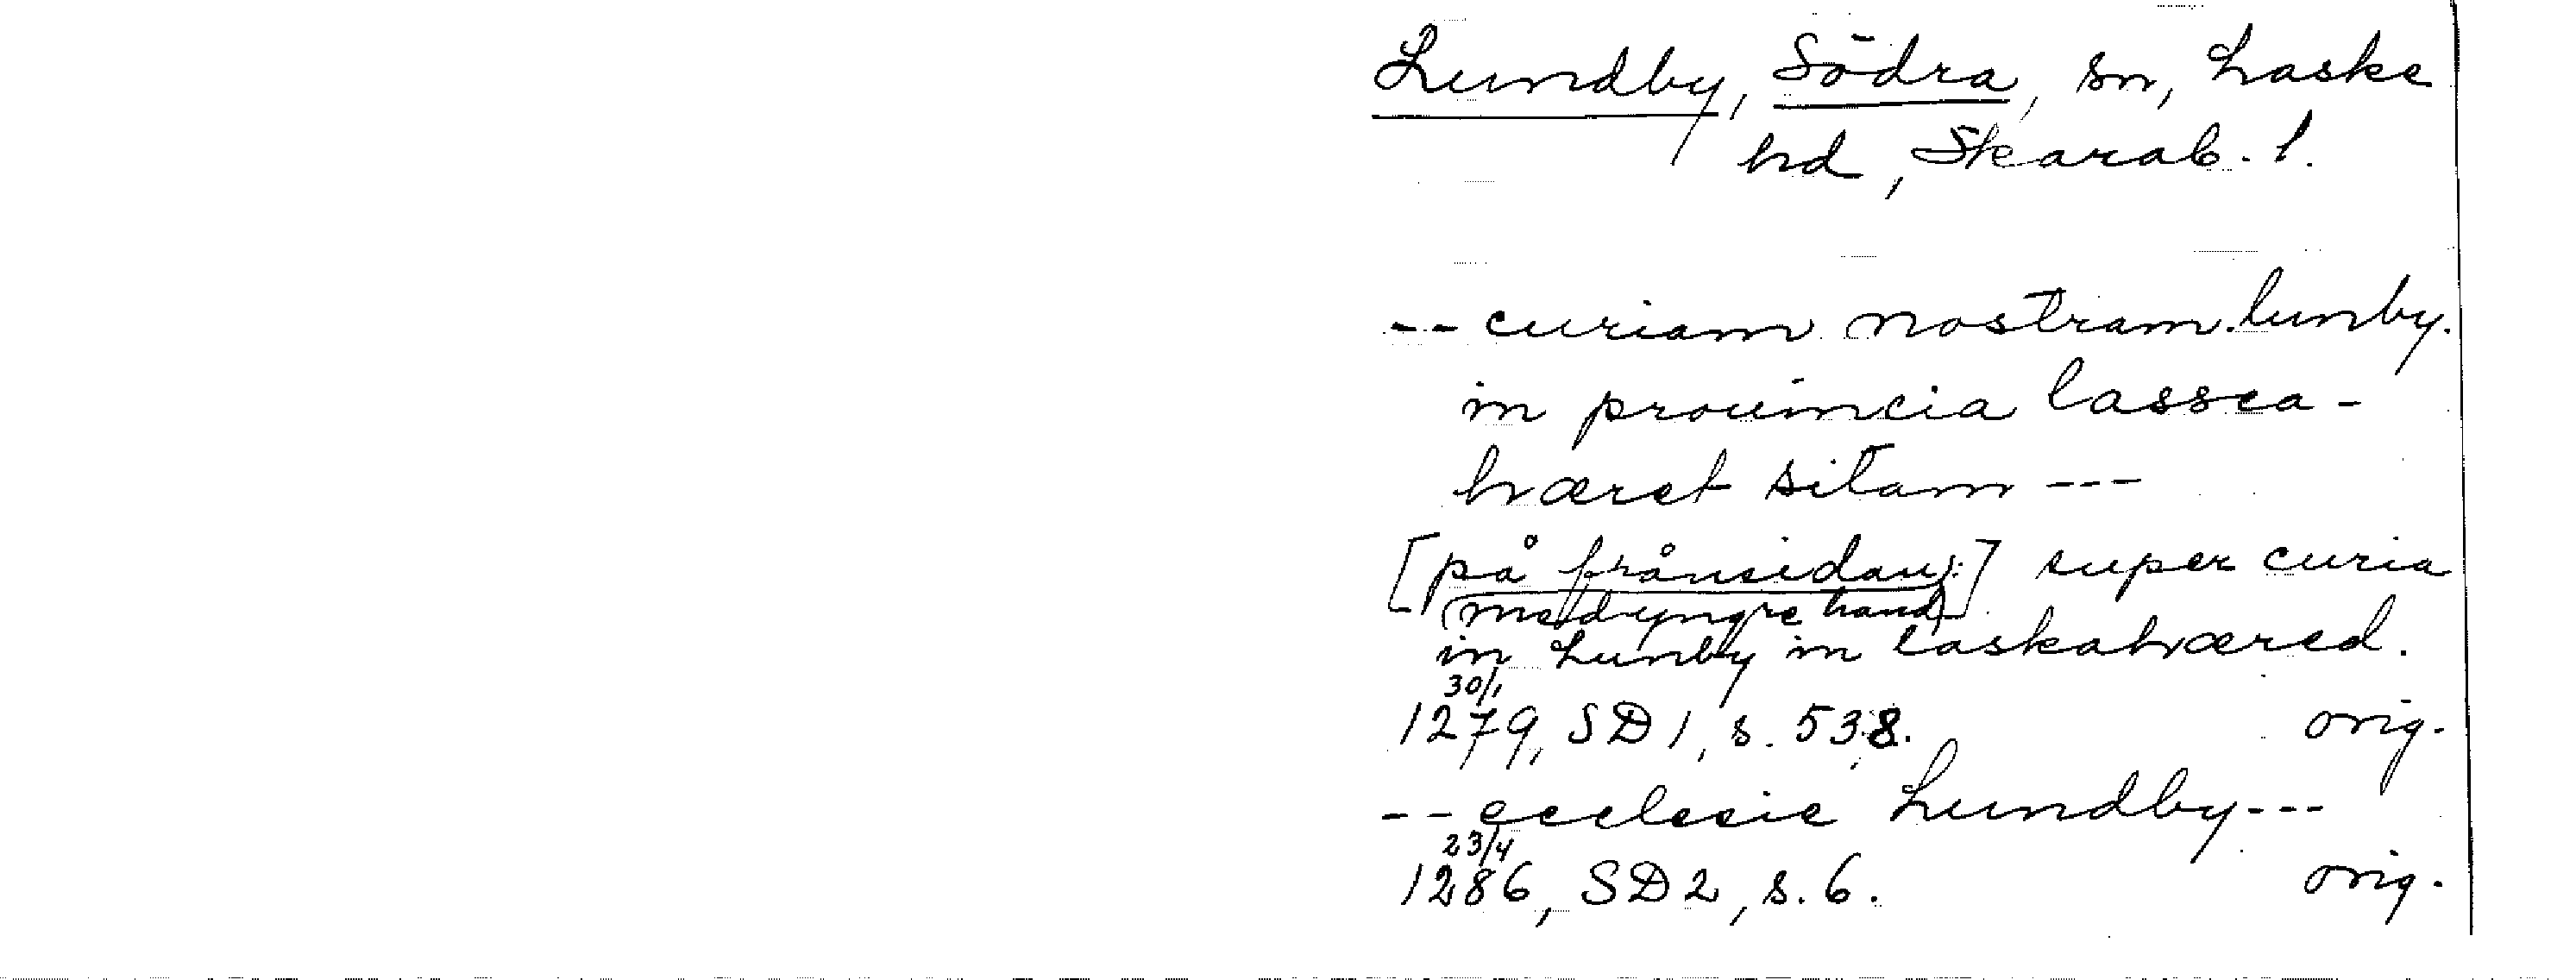 Lundby, Södra, sn, Laske
hd, Skarab. l.
-- curiam nostram. lunby.
in prouincia lassea-
hæret sitam ---
[på frånsidan:] super curia
(med yngre hand)
in Lunby in laskahæred.
30/1
1279, SD 1, s. 538. orig.
-- ecclesie Lundby ---
23/4
1286, SD 2, s. 6. orig.